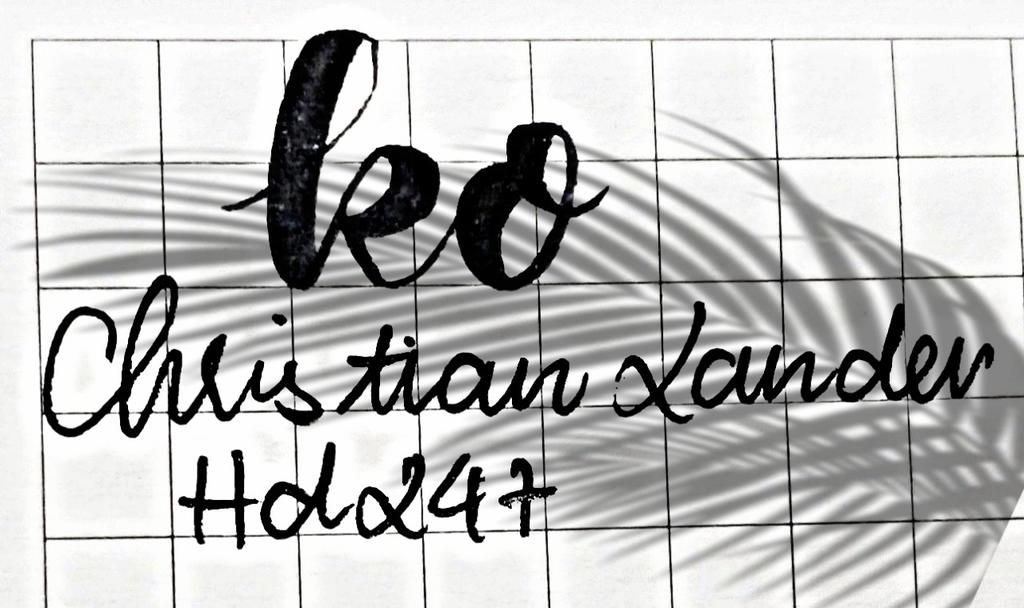 ko
Christian Lander
Hd247